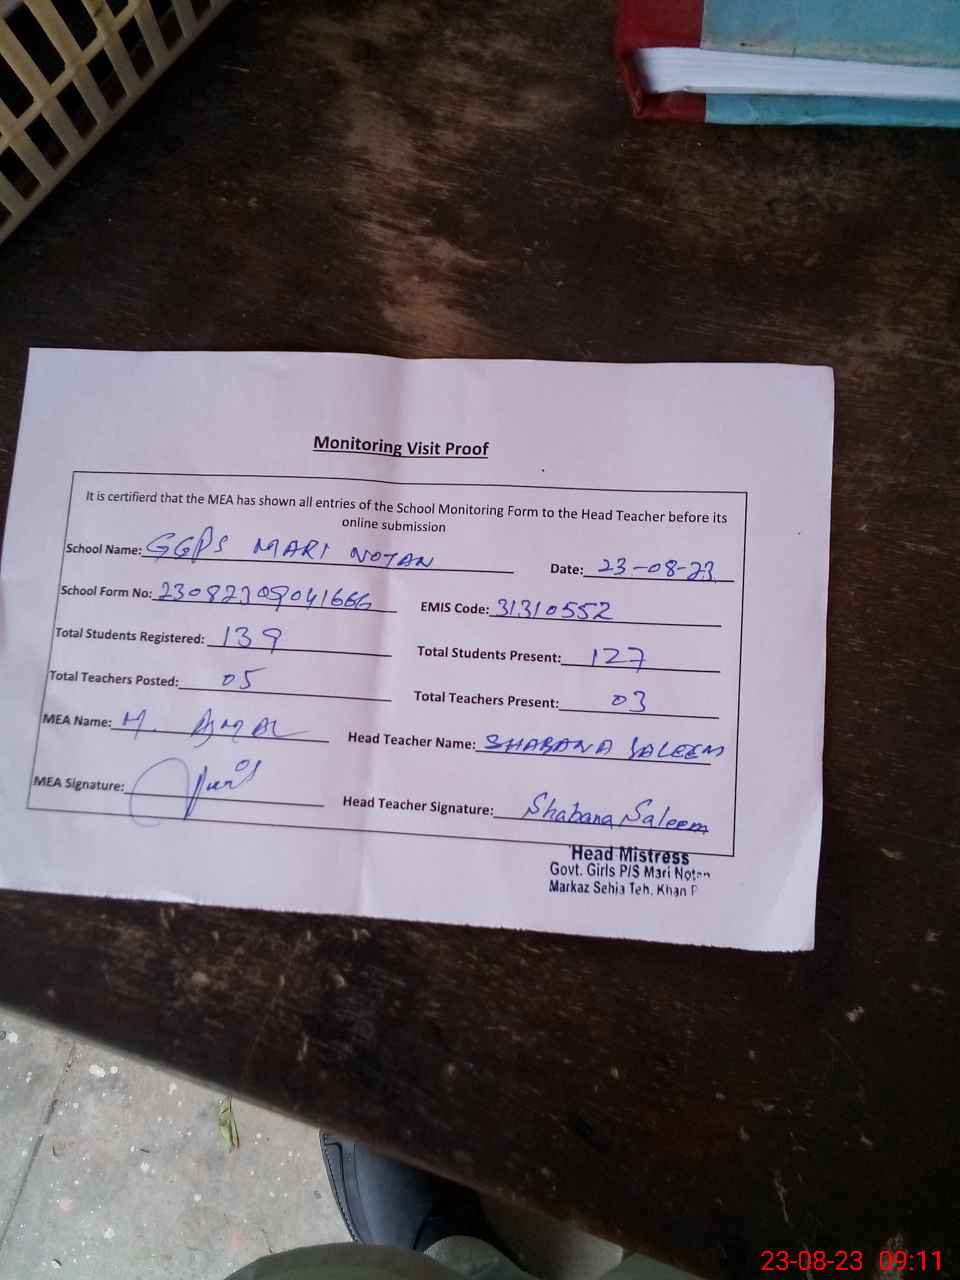 Monitoring Visit Proof
It is certifierd that the MEA has shown all entries of the School Monitoring Form to the Head Teacher before its
online submission
School Name: GGPS MARI NOTAN Date: 23-08-23
School Form No: 23082309041666 EMIS Code: 31310552
Total Students Registered: 139 Total Students Present: 127
Total Teachers Posted: 05 Total Teachers Present: 03
MEA Name: M. AJMAL Head Teacher Name: SHABANA SALEEM
MEA Signature: Head Teacher Signature: Shabana Saleem
Head Mistress
Govt. Girls P/S Mari Notan
Markaz Sehja Teh. Khan P
23-08-23 09:11